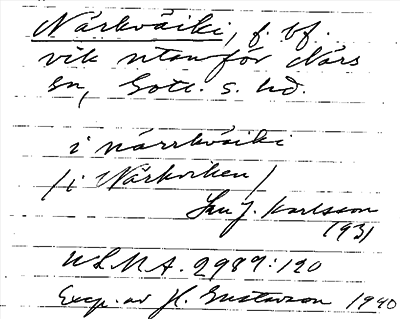 Närkväiki, f. bf.
vik utanför Närs
sn, Gotl. s. hd.
i närrkväiki
/i Närkviken/
J. Karlsson
1931
ULMA. 2989:120
Exc. av H. Gustavson 1940